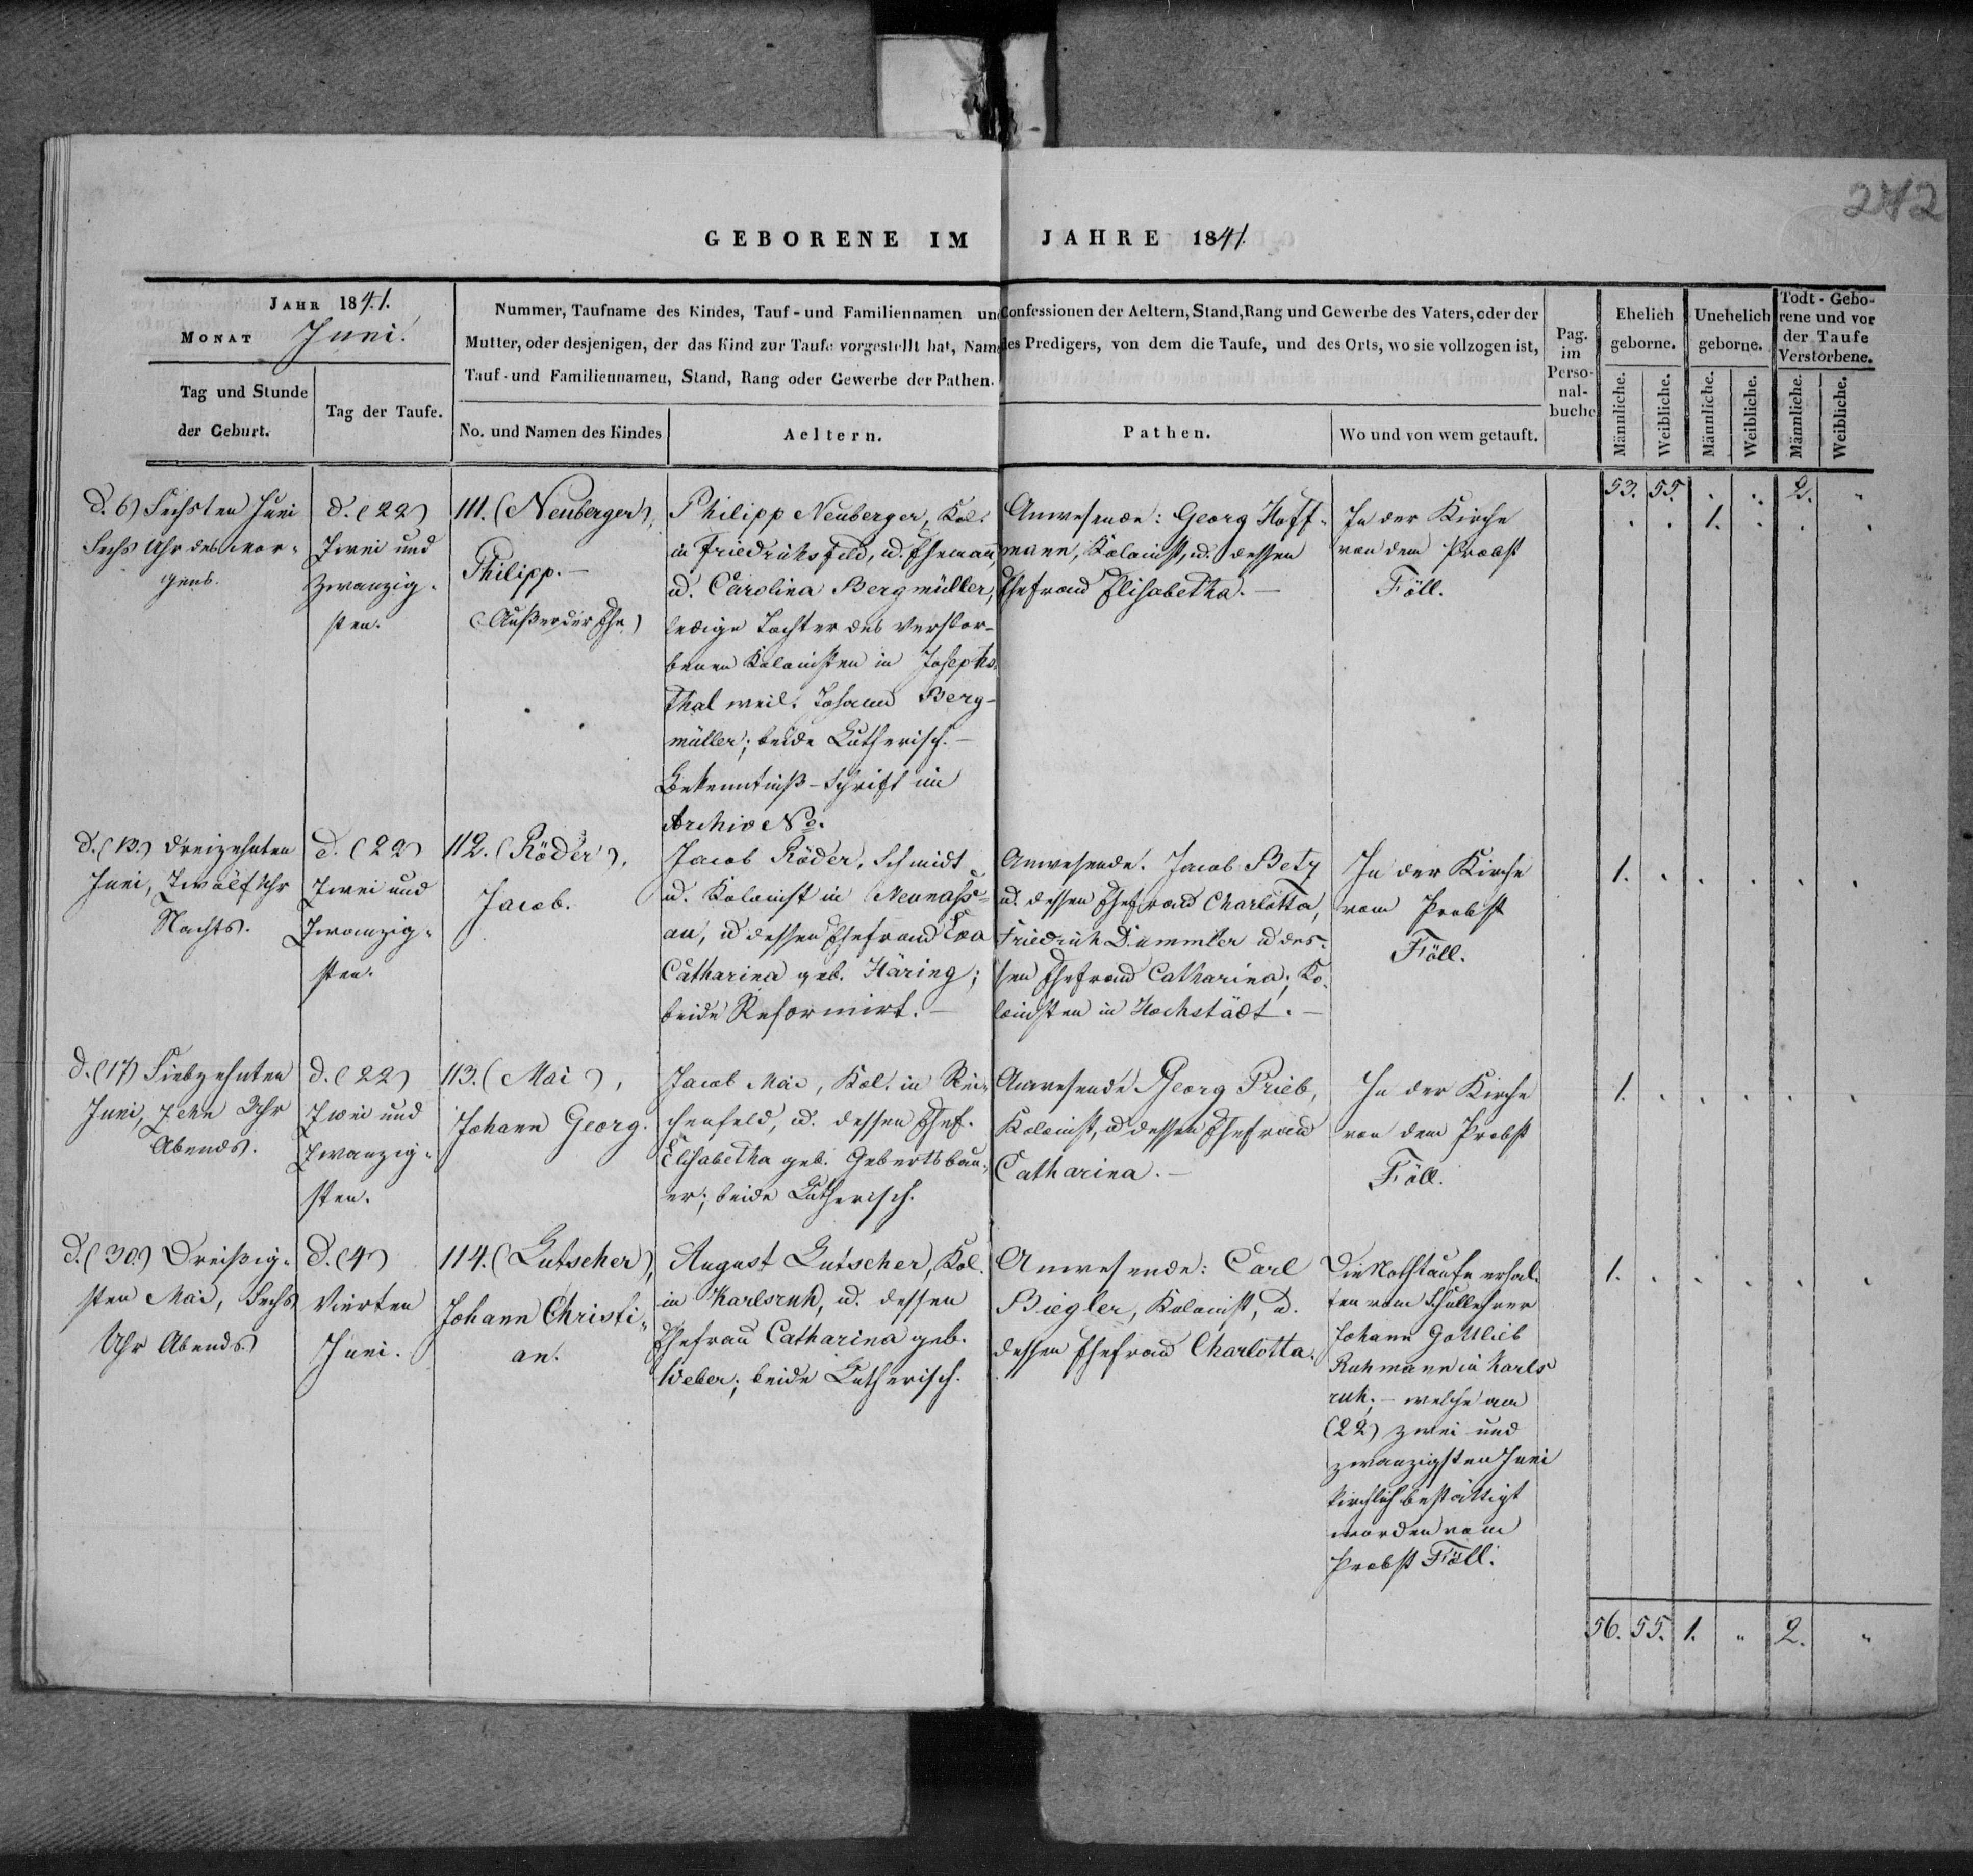 242
GEBORENE IM JAHRE 1841.
JAHR 1841.
MONAT Juni.
Nummer, Taufname des Kindes, Tauf- und Familiennamen und Confessionen der Aeltern, Stand, Rang und Gewerbe des Vaters, oder der
Mutter, oder desjenigen, der das Kind zur Taufe vorgestellt hat, Name des Predigers, von dem die Taufe, und des Orts, wo sie vollzogen ist,
Tauf- und Familiennamen, Stand, Rang oder Gewerbe der Pathen.
Tag und Stunde
der Geburt.
Tag der Taufe.
No. und Namen des Kindes
Aeltern.
Pathen.
Wo und von wem getauft.
Pag.
im
Perso-
nal-
buche
Ehelich
geborne.
Unehelich
geborne.
Todt-Gebo-
rene und vor
der Taufe
Verstorbene.
Männliche.
Weibliche.
Männliche.
Weibliche.
Männliche.
Weibliche.
53. 55. . . 2. "
d. 6) Sechsten Juni
Sechs Uhr des Mor-
gens.
d. (22)
Zwei und
zwanzig-
sten.
111. (Neuberger),
Philipp. —
(Außer der Ehe)
Philipp Neuberger, Kol.
in Friedrichsfeld, u. Ehemann,
u. Carolina Bergmüller,
ledige Tochter des verstor-
benen Kolonisten in Josephs-
thal weil. Johann Berg-
müller; beide Lutherisch. —
Bekenntniß-Schrift im
Archiv No.
Anwesende: Georg Hoff-
mann, Kolonist, u. dessen
Ehefrau Elisabetha. —
In der Kirche
von dem Probst
Föll.
. . 1. . . .
d. (13.) Dreizehnten
Juni, Zwölf Uhr
Nachts.
d. (22)
Zwei und
Zwanzig-
sten.
112. (Röder),
Jacob.
Jacob Röder, Schmidt
u. Kolonist in Neunass-
au, u dessen Ehefrau Eva
Catharina geb. Häring;
beide Reformirt. —
Anwesende. Jacob Betz
u. dessen Ehefrau Charlotta,
Friedrich Dummler u des-
sen Ehefrau Catharina; Ko-
lonisten in Hochstädt. —
In der Kirche
vom Probst
Föll.
1. . . . . .
d. (17) Siebzehnten
Juni, Zehn Uhr
Abends.
d. (22)
Zwei und
Zwanzig-
sten.
113. (Mai),
Johann Georg.
Jacob Mai, Kol. in Rei-
chenfeld, u. dessen Ehef.
Elisabetha geb. Gebertsbau-
er; beide Lutherisch.
Anwesende Georg Prieb,
Kolonist, u dessen Ehefrau
Catharina. —
In der Kirche
von dem Probst
Föll.
1. . . . . .
d. (30.) Dreißig-
sten Mai, Sechs
Uhr Abends.
d. (4)
Vierten
Juni.
114. (Lutscher),
Johann Christi-
an.
August Lutscher, Kol.
in Karlsruh, u. dessen
Ehefrau Catharina geb.
Weber; beide Lutherisch.
Anwesende: Carl
Biegler, Kolonist, u.
dessen Ehefrau Charlotta.
Die Nothtaufe erhal-
ten vom Schullehrer
Johann Gottlieb
Ruhmann in Karls
ruh; — welche am
(22) zwei und
zwanzigsten Juni
kirchlich bestättigt
worden vom
Probst Föll.
1. . . . . .
56. 55. 1. " 2. "